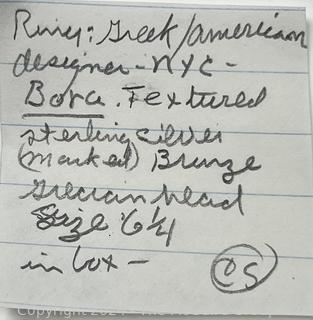 Ring: Greek/american
designer - NYC -
Bora. Textured
sterling silver
(marked) Bronze
grecian head
Size 6 1/4
in box -
OS